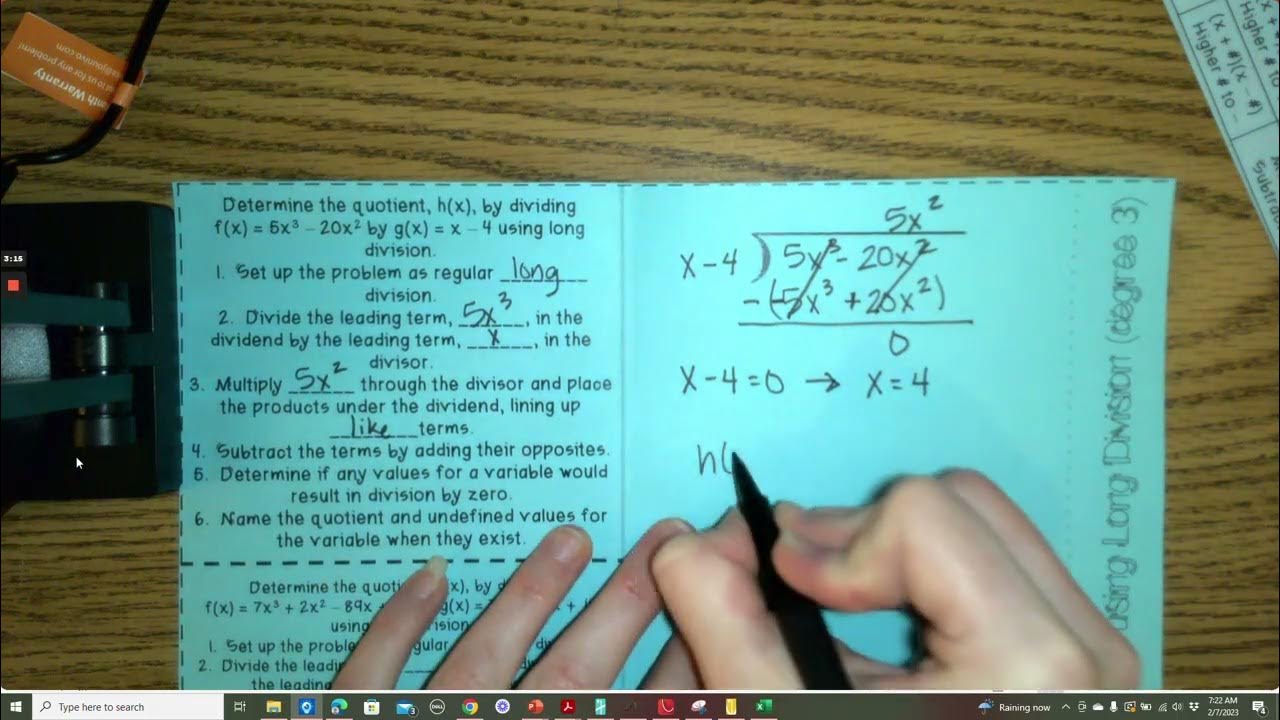 to us for any problem!
@jounivo.com
nth Warranty
3:15
Determine the quotient, h(x), by dividing
f(x) = 5x³ – 20x² by g(x) = x – 4 using long
division.
1. Set up the problem as regular long
division.
2. Divide the leading term, 5x³, in the
dividend by the leading term, x, in the
divisor.
3. Multiply 5x² through the divisor and place
the products under the dividend, lining up
like terms.
4. Subtract the terms by adding their opposites.
5. Determine if any values for a variable would
result in division by zero.
6. Name the quotient and undefined values for
the variable when they exist.
Determine the quoti (x), by d
f(x) = 7x³ + 2x² – 89x g(x) =
using ision
1. Set up the proble gular
2. Divide the leadi
the leading
5x²
x – 4 ) 5x³ – 20x²
– (–5x³ + 20x²)
0
x – 4 = 0 → x = 4
h(
using Long Division (degree 3)
(x + #)(x – #)
Higher # is –
Higher # is
Subtrac
Type here to search
Raining now
7:22 AM
2/7/2023